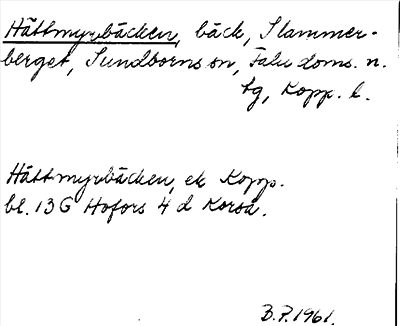 Hättmyrbäcken, bäck, Slammer-
berget, Sundborns sn, Falu doms. n.
tg, Kopp. l.
Hättmyrbäcken, ek Kopp.
bl. 13G Hofors 4 d Korså.
B.P. 1961.